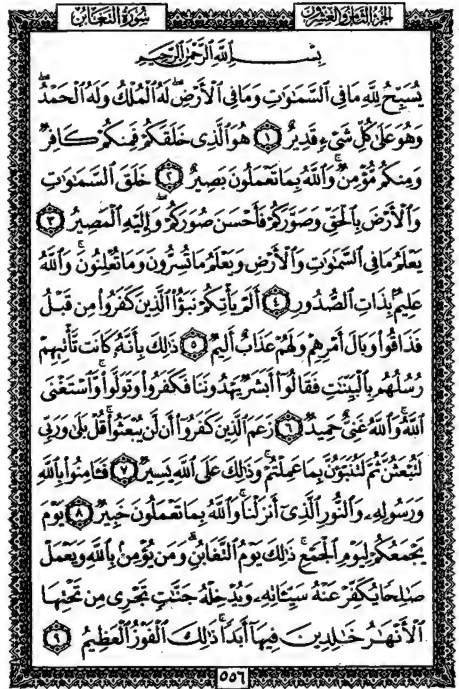 الجُزْءُ الثَّامِنُ وَالعِشْرُونَ
سُورَةُ التَّغَابُنِ
بِسْمِ ٱللَّهِ ٱلرَّحْمَٰنِ ٱلرَّحِيمِ
يُسَبِّحُ لِلَّهِ مَا فِى ٱلسَّمَٰوَٰتِ وَمَا فِى ٱلْأَرْضِ ۖ لَهُ ٱلْمُلْكُ وَلَهُ ٱلْحَمْدُ ۖ
وَهُوَ عَلَىٰ كُلِّ شَىْءٍ قَدِيرٌ ١ هُوَ ٱلَّذِى خَلَقَكُمْ فَمِنكُمْ كَافِرٌ
وَمِنكُم مُّؤْمِنٌ ۚ وَٱللَّهُ بِمَا تَعْمَلُونَ بَصِيرٌ ٢ خَلَقَ ٱلسَّمَٰوَٰتِ
وَٱلْأَرْضَ بِٱلْحَقِّ وَصَوَّرَكُمْ فَأَحْسَنَ صُوَرَكُمْ ۖ وَإِلَيْهِ ٱلْمَصِيرُ ٣
يَعْلَمُ مَا فِى ٱلسَّمَٰوَٰتِ وَٱلْأَرْضِ وَيَعْلَمُ مَا تُسِرُّونَ وَمَا تُعْلِنُونَ ۚ وَٱللَّهُ
عَلِيمٌۢ بِذَاتِ ٱلصُّدُورِ ٤ أَلَمْ يَأْتِكُمْ نَبَؤُا۟ ٱلَّذِينَ كَفَرُوا۟ مِن قَبْلُ
فَذَاقُوا۟ وَبَالَ أَمْرِهِمْ وَلَهُمْ عَذَابٌ أَلِيمٌ ٥ ذَٰلِكَ بِأَنَّهُۥ كَانَت تَّأْتِيهِمْ
رُسُلُهُم بِٱلْبَيِّنَٰتِ فَقَالُوٓا۟ أَبَشَرٌ يَهْدُونَنَا فَكَفَرُوا۟ وَتَوَلَّوا۟ ۚ وَّٱسْتَغْنَى
ٱللَّهُ ۚ وَٱللَّهُ غَنِىٌّ حَمِيدٌ ٦ زَعَمَ ٱلَّذِينَ كَفَرُوٓا۟ أَن لَّن يُبْعَثُوا۟ ۚ قُلْ بَلَىٰ وَرَبِّى
لَتُبْعَثُنَّ ثُمَّ لَتُنَبَّؤُنَّ بِمَا عَمِلْتُمْ ۚ وَذَٰلِكَ عَلَى ٱللَّهِ يَسِيرٌ ٧ فَـَٔامِنُوا۟ بِٱللَّهِ
وَرَسُولِهِۦ وَٱلنُّورِ ٱلَّذِىٓ أَنزَلْنَا ۚ وَٱللَّهُ بِمَا تَعْمَلُونَ خَبِيرٌ ٨ يَوْمَ
يَجْمَعُكُمْ لِيَوْمِ ٱلْجَمْعِ ۖ ذَٰلِكَ يَوْمُ ٱلتَّغَابُنِ ۗ وَمَن يُؤْمِنۢ بِٱللَّهِ وَيَعْمَلْ
صَٰلِحًا يُكَفِّرْ عَنْهُ سَيِّـَٔاتِهِۦ وَيُدْخِلْهُ جَنَّٰتٍ تَجْرِى مِن تَحْتِهَا
ٱلْأَنْهَٰرُ خَٰلِدِينَ فِيهَآ أَبَدًا ۚ ذَٰلِكَ ٱلْفَوْزُ ٱلْعَظِيمُ ٩
٥٥٦